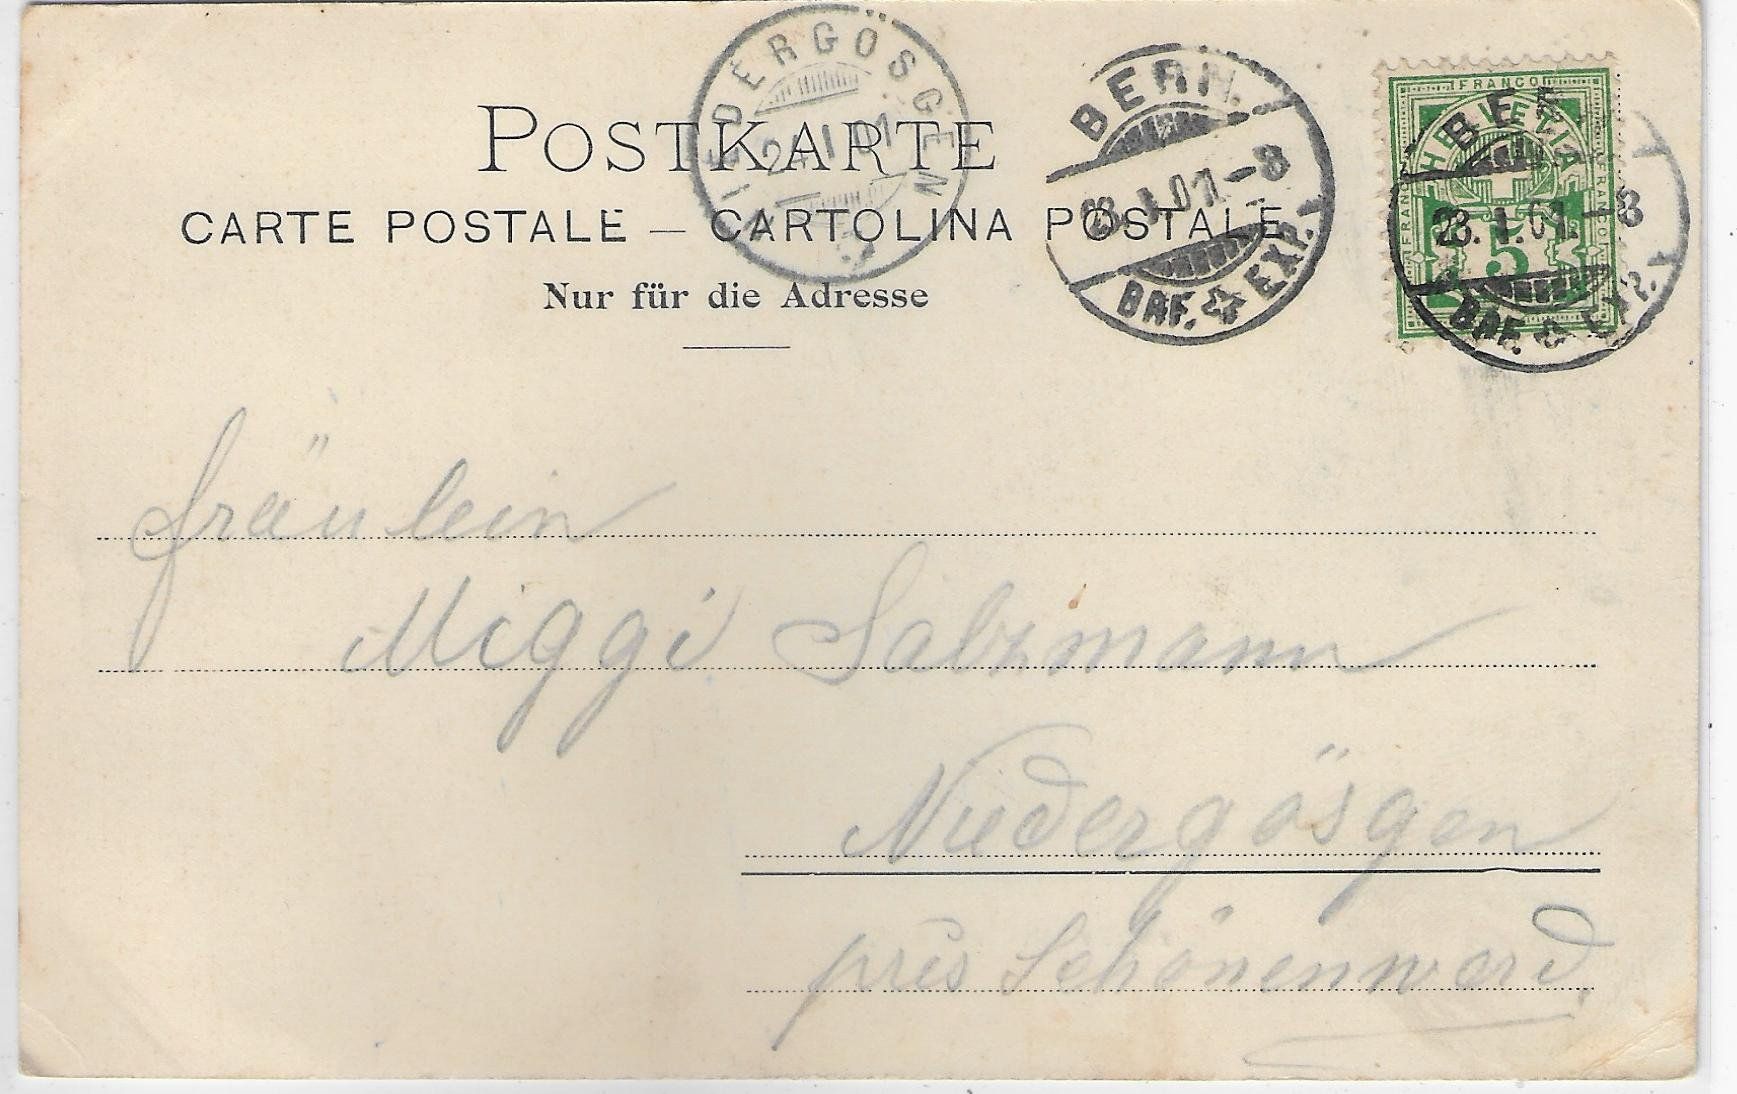 POSTKARTE
CARTE POSTALE — CARTOLINA POSTALE
Nur für die Adresse
NIEDERGÖSGEN
24.I.01
BERN.
23.I.01.-8
BRF. EXP.
FRANCO
HELVETIA
FRANCO
FRANCO
5
BERN
23.I.01.-8
BRF. EXP.
Fräulein
Miggi Salzmann
Niedergösgen
près Schönenwerd.